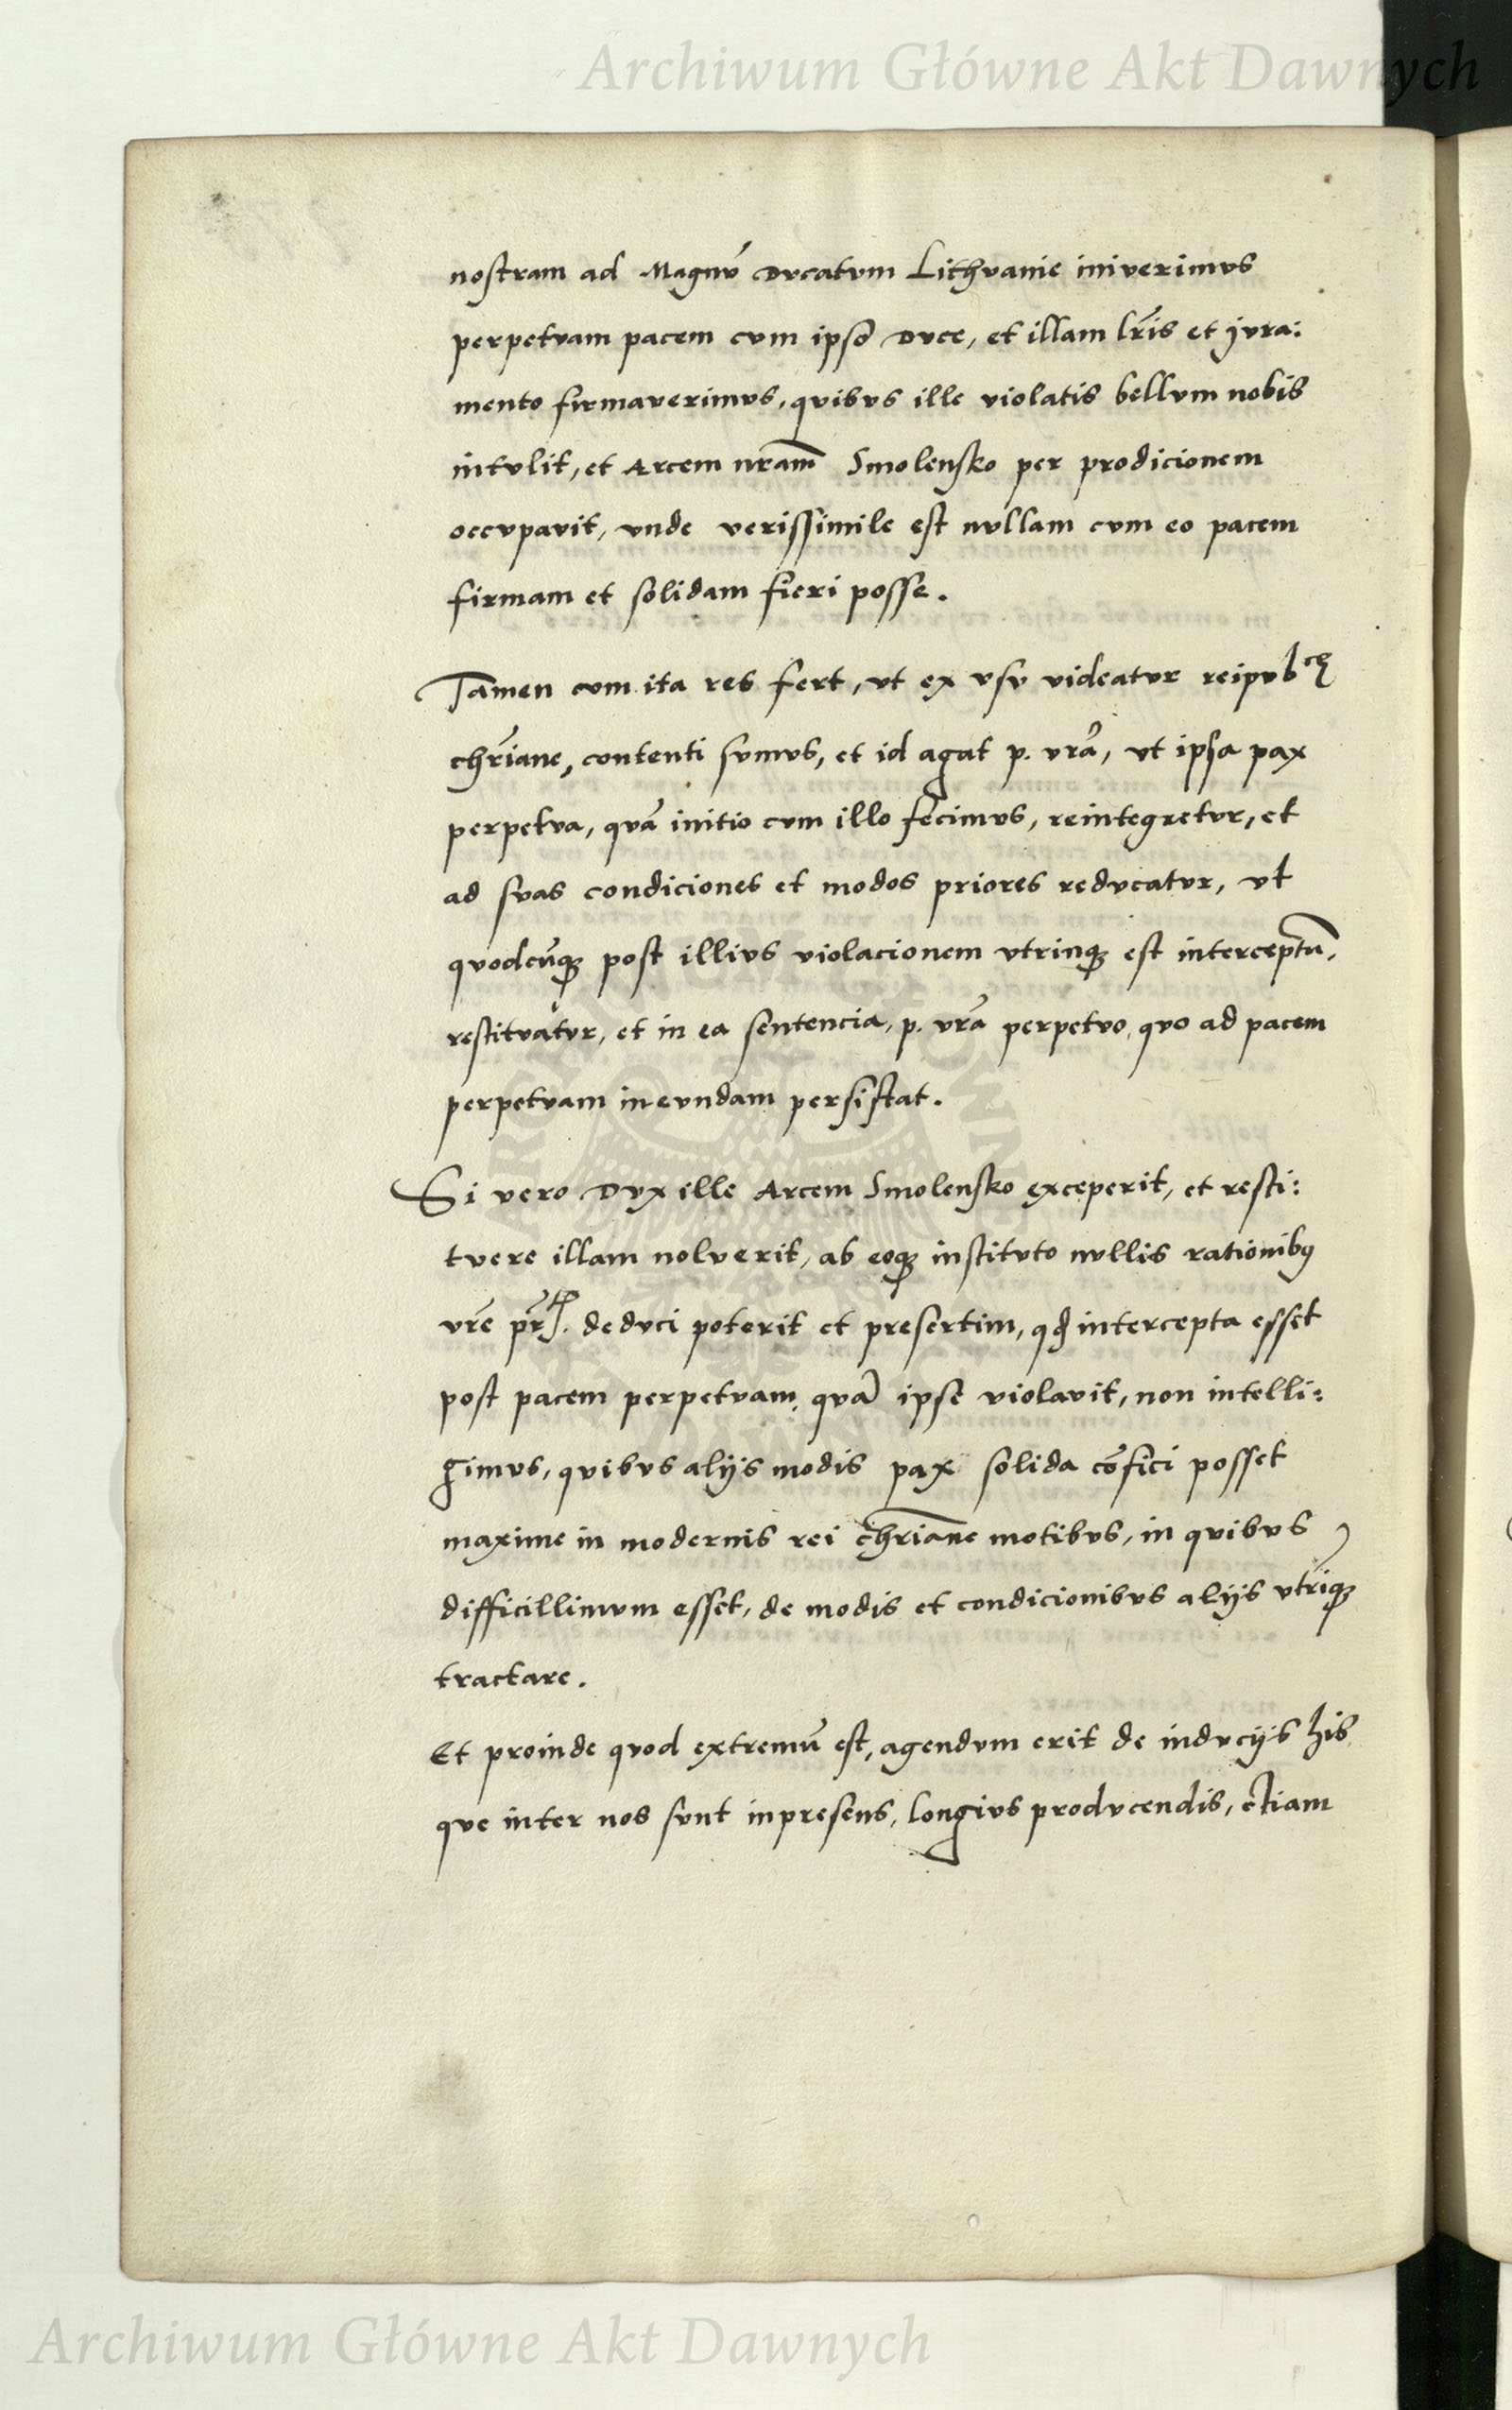 Archiwum Główne Akt Dawnych
nostram ad Magnū Dvcatvm Lithvanie iniverimvs
perpetvam pacem cvm ipso Dvce, et illam lr̄is et jvra:
mento firmaverimvs, qvibvs ille violatis bellvm nobis
intvlit, et Arcem nr̄am Smolensko per prodicionem
occvpavit, vnde verissimile est nvllam cvm eo pacem
firmam et solidam fieri posse.
Tamen cvm ita res fert, vt ex vsv videatvr reipvbce
chr̄iane, contenti svmvs, et id agat p. vr̄a, vt ipsa pax
perpetva, qvā initio cvm illo fecimvs, reintegretvr, et
ad svas condiciones et modos priores redvcatvr, vt
qvodcūq; post illivs violacionem vtrinq; est interceptū,
restitvatvr, et in ea sentencia, p. vr̄a perpetvo, qvo ad pacem
perpetvam inevndam persistat.
Si vero Dvx ille Arcem Smolensko exceperit, et resti:
tvere illam nolverit, ab eoq; institvto nvllis rationibꝰ
vr̄e pr̄. dedvci poterit et presertim, qđ intercepta esset
post pacem perpetvam, qvā ipse violavit, non intelli:
gimvs, qvibvs alijs modis pax solida cōfici posset
maxime in modernis rei chr̄iane motibvs, in qvibvs
difficillimvm esset, de modis et condicionibvs alijs vtriq;
tractare.
Et proinde qvod extremū est, agendvm erit de indvcijs his
qve inter nos svnt inpresens, longivs prodvcendis, etiam
Archiwum Główne Akt Dawnych